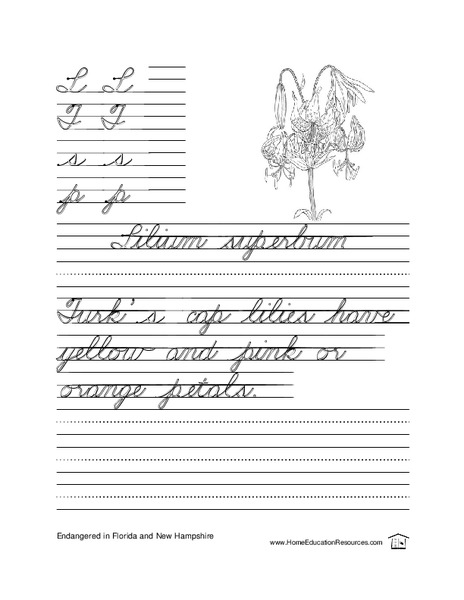 L L
T T
s s
p p
Lilium superbum
Turk's cap lilies have
yellow and pink or
orange petals.
Endangered in Florida and New Hampshire
www.HomeEducationResources.com